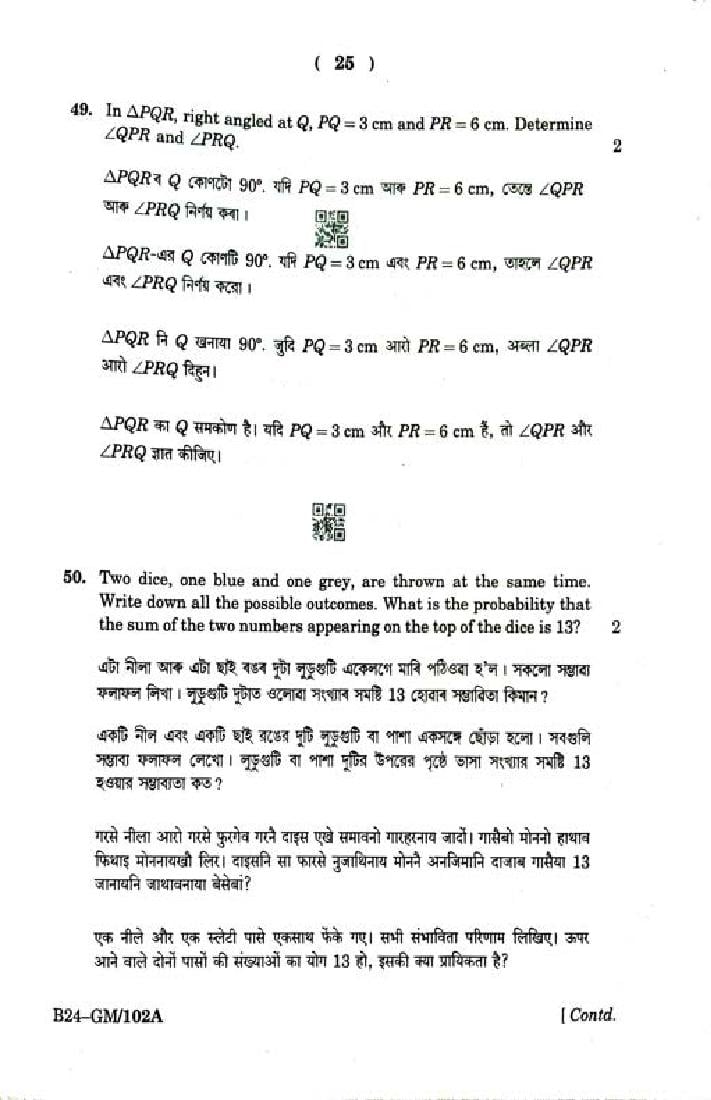 ( 25 )
49. In ΔPQR, right angled at Q, PQ = 3 cm and PR = 6 cm. Determine
∠QPR and ∠PRQ.
2
ΔPQRৰ Q কোণটো 90°. যদি PQ = 3 cm আৰু PR = 6 cm, তেন্তে ∠QPR
আৰু ∠PRQ নিৰ্ণয় কৰা ।
ΔPQR-এর Q কোণটি 90°. যদি PQ = 3 cm এবং PR = 6 cm, তাহলে ∠QPR
এবং ∠PRQ নির্ণয় করো ।
ΔPQR नि Q खनाया 90°. जुदि PQ = 3 cm आरो PR = 6 cm, अब्ला ∠QPR
आरो ∠PRQ दिहुन।
ΔPQR का Q समकोण है। यदि PQ = 3 cm और PR = 6 cm हैं, तो ∠QPR और
∠PRQ ज्ञात कीजिए।
50. Two dice, one blue and one grey, are thrown at the same time.
Write down all the possible outcomes. What is the probability that
the sum of the two numbers appearing on the top of the dice is 13? 2
এটা নীলা আৰু এটা ছাই ৰঙৰ দুটা লুডুগুটি একেলগে মাৰি পঠিওৱা হ'ল । সকলো সম্ভাৱ্য
ফলাফল লিখা । লুডুগুটি দুটাত ওলোৱা সংখ্যাৰ সমষ্টি 13 হোৱাৰ সম্ভাৱিতা কিমান ?
একটি নীল এবং একটি ছাই রঙের দুটি লুডুগুটি বা পাশা একসঙ্গে ছোঁড়া হলো । সবগুলি
সম্ভাব্য ফলাফল লেখো । লুডুগুটি বা পাশা দুটির উপরের পৃষ্ঠে ভাসা সংখ্যার সমষ্টি 13
হওয়ার সম্ভাব্যতা কত ?
गरसे नीला आरो गरसे फुरगेव गरनै दाइस एखे समावनो गारहरनाय जादों। गासैबो मोननो हाथाव
फिथाइ मोननायखौ लिर। दाइसनि सा फारसे नुजाथिनाय मोननै अनजिमानि दाजाब गासैया 13
जानायनि जाथावनाया बेसेबां?
एक नीले और एक स्लेटी पासे एकसाथ फेंके गए। सभी संभाविता परिणाम लिखिए। ऊपर
आने वाले दोनों पासों की संख्याओं का योग 13 हो, इसकी क्या प्रायिकता है?
B24–GM/102A
[ Contd.